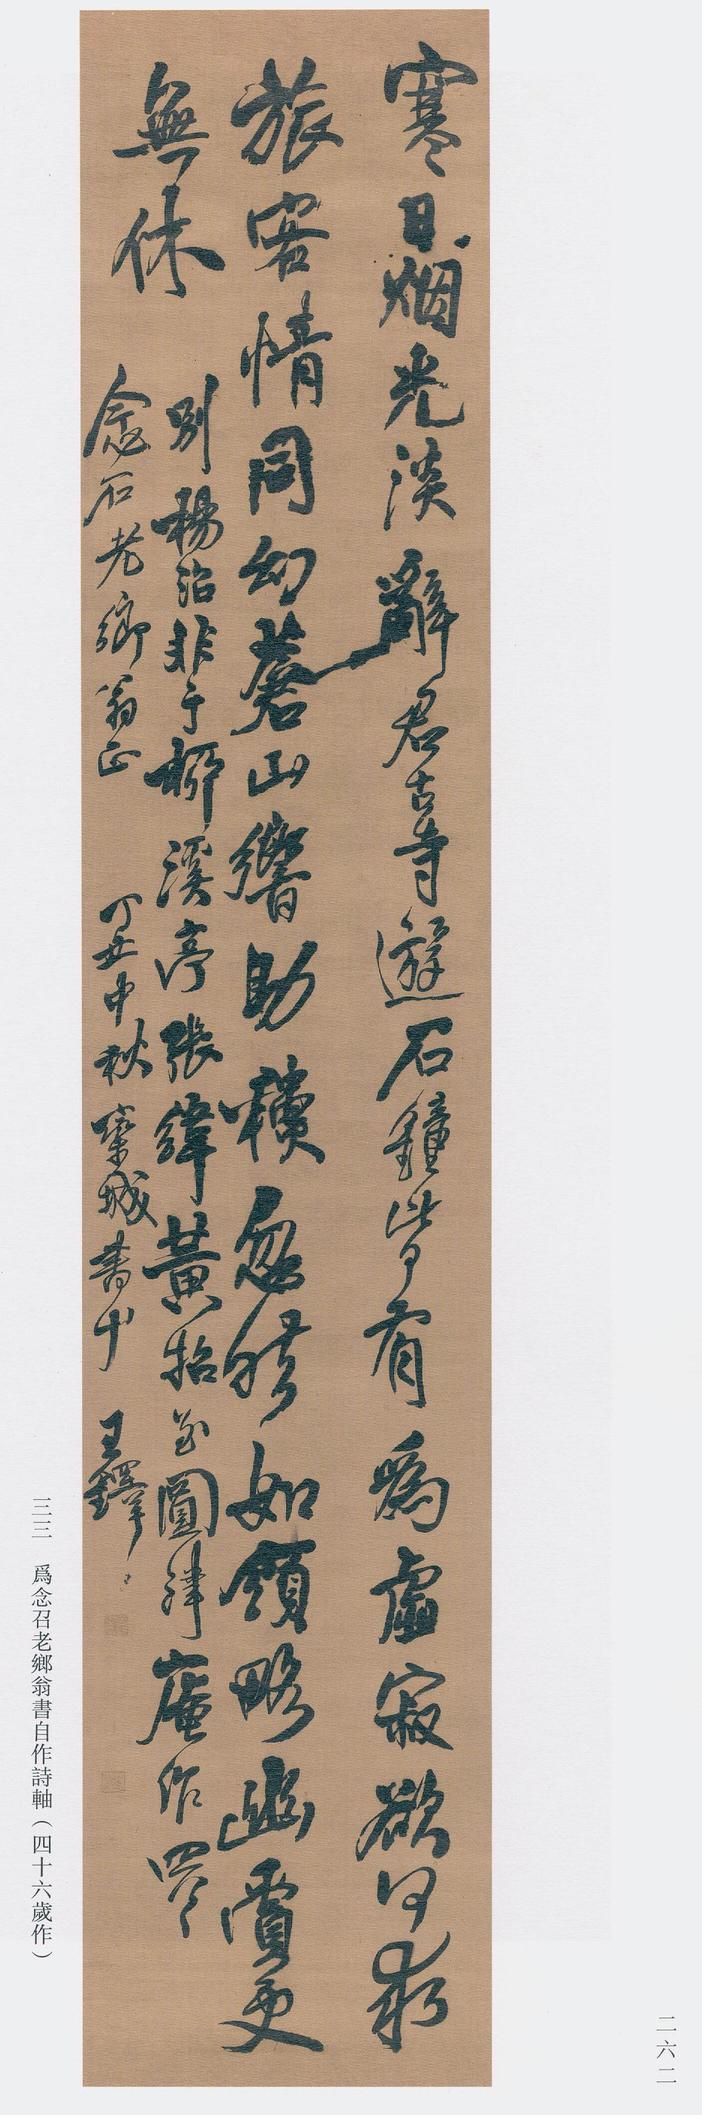 寒日烟光淡辭君古寺遊石鐘皆有為虛寂欲何求
旅客情同幻蒼山響助穳忽然如領略幽賞更
無休
別楊治非于柳溪亭張緯黃招至圓津庵作
念召老鄉翁正 丁丑中秋 欒城書 王鐸
三三 爲念召老鄉翁書自作詩軸（四十六歲作）
二六二